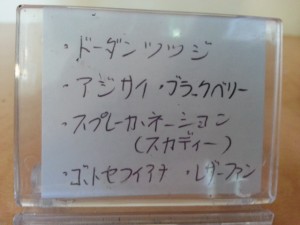 ・ドーダンツツジ
・アジサイ・ブラックベリー
・スプレーカーネーション
(スカディー)
・ゴットセフィアナ ・レザーファン